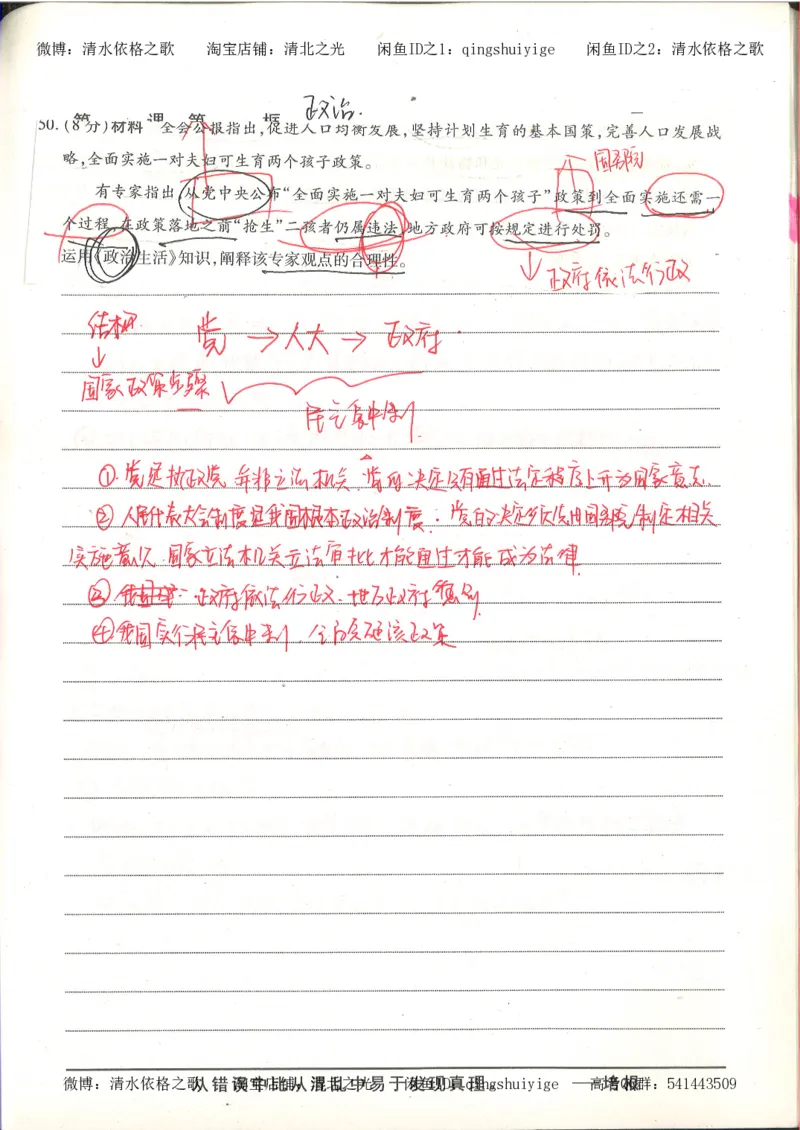 微博：清水依格之歌 淘宝店铺：清北之光 闲鱼ID之1：qingshuiyige 闲鱼ID之2：清水依格之歌
政治.
50.(8分)材料 全会公报指出,促进人口均衡发展,坚持计划生育的基本国策,完善人口发展战
略,全面实施一对夫妇可生育两个孩子政策。
国务院
有专家指出,从党中央公布“全面实施一对夫妇可生育两个孩子”政策到全面实施还需一
个过程,在政策落地之前“抢生”二孩者仍属违法,地方政府可按规定进行处罚。
运用《政治生活》知识,阐释该专家观点的合理性。
政府依法行政
结构
党→人大→政府
国家政策步骤
民主集中制
①.党是执政党,并非立法机关,党的决定只有通过法定程序上升为国家意志.
②人民代表大会制度是我国根本政治制度:党的决定须使用国务院制定相关
实施意见,国家立法机关立法审批才能通过才能成为法律
③政府依法行政.地方政府
④我国实行民主集中制,全国该政策
微博：清水依格之歌 闲鱼ID：qingshuiyige 高考QQ群：541443509
从错误中比从混乱中易于发现真理。 ——培根